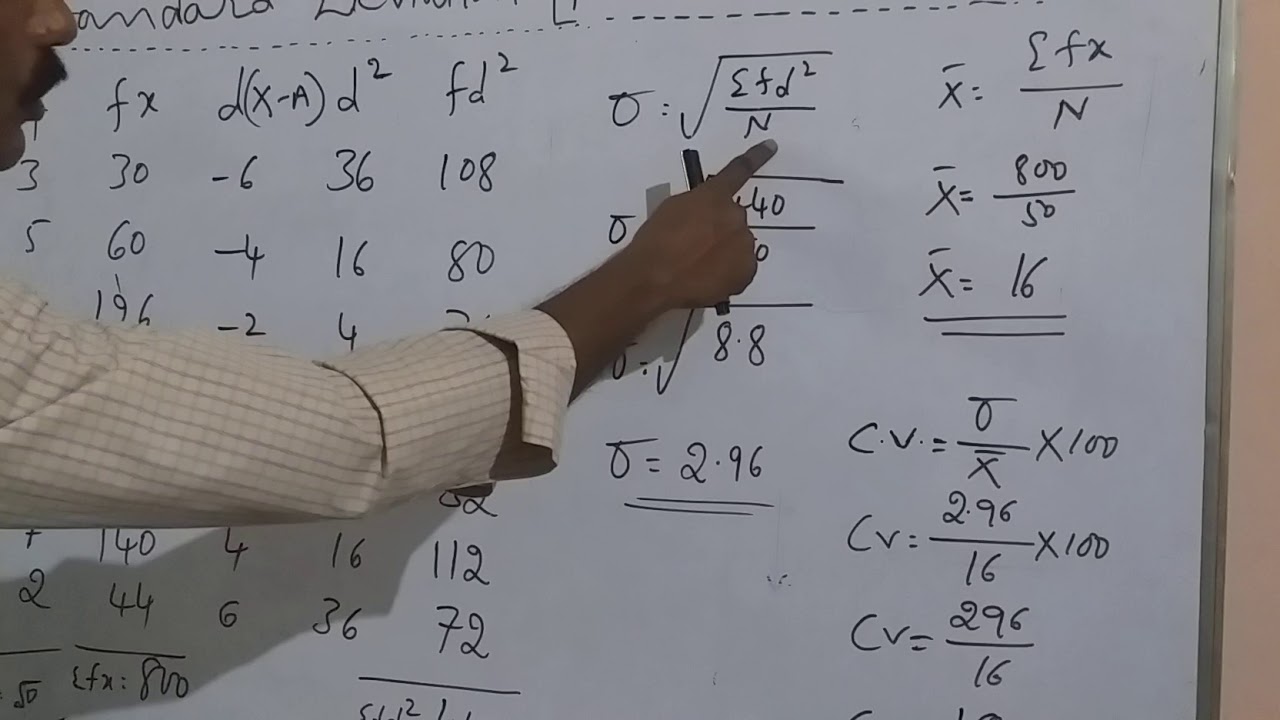 fx d(X-A) d² fd²
3 30 -6 36 108
5 60 -4 16 80
196 -2 4
140 4 16 112
2 44 6 36 72
50 Σfx: 800
σ: √Σfd²/N
40
σ
σ: √8.8
σ = 2.96
x̄ = Σfx/N
x̄ = 800/50
x̄ = 16
C.V. = σ/x̄ X100
CV = 2.96/16 X100
CV = 296/16